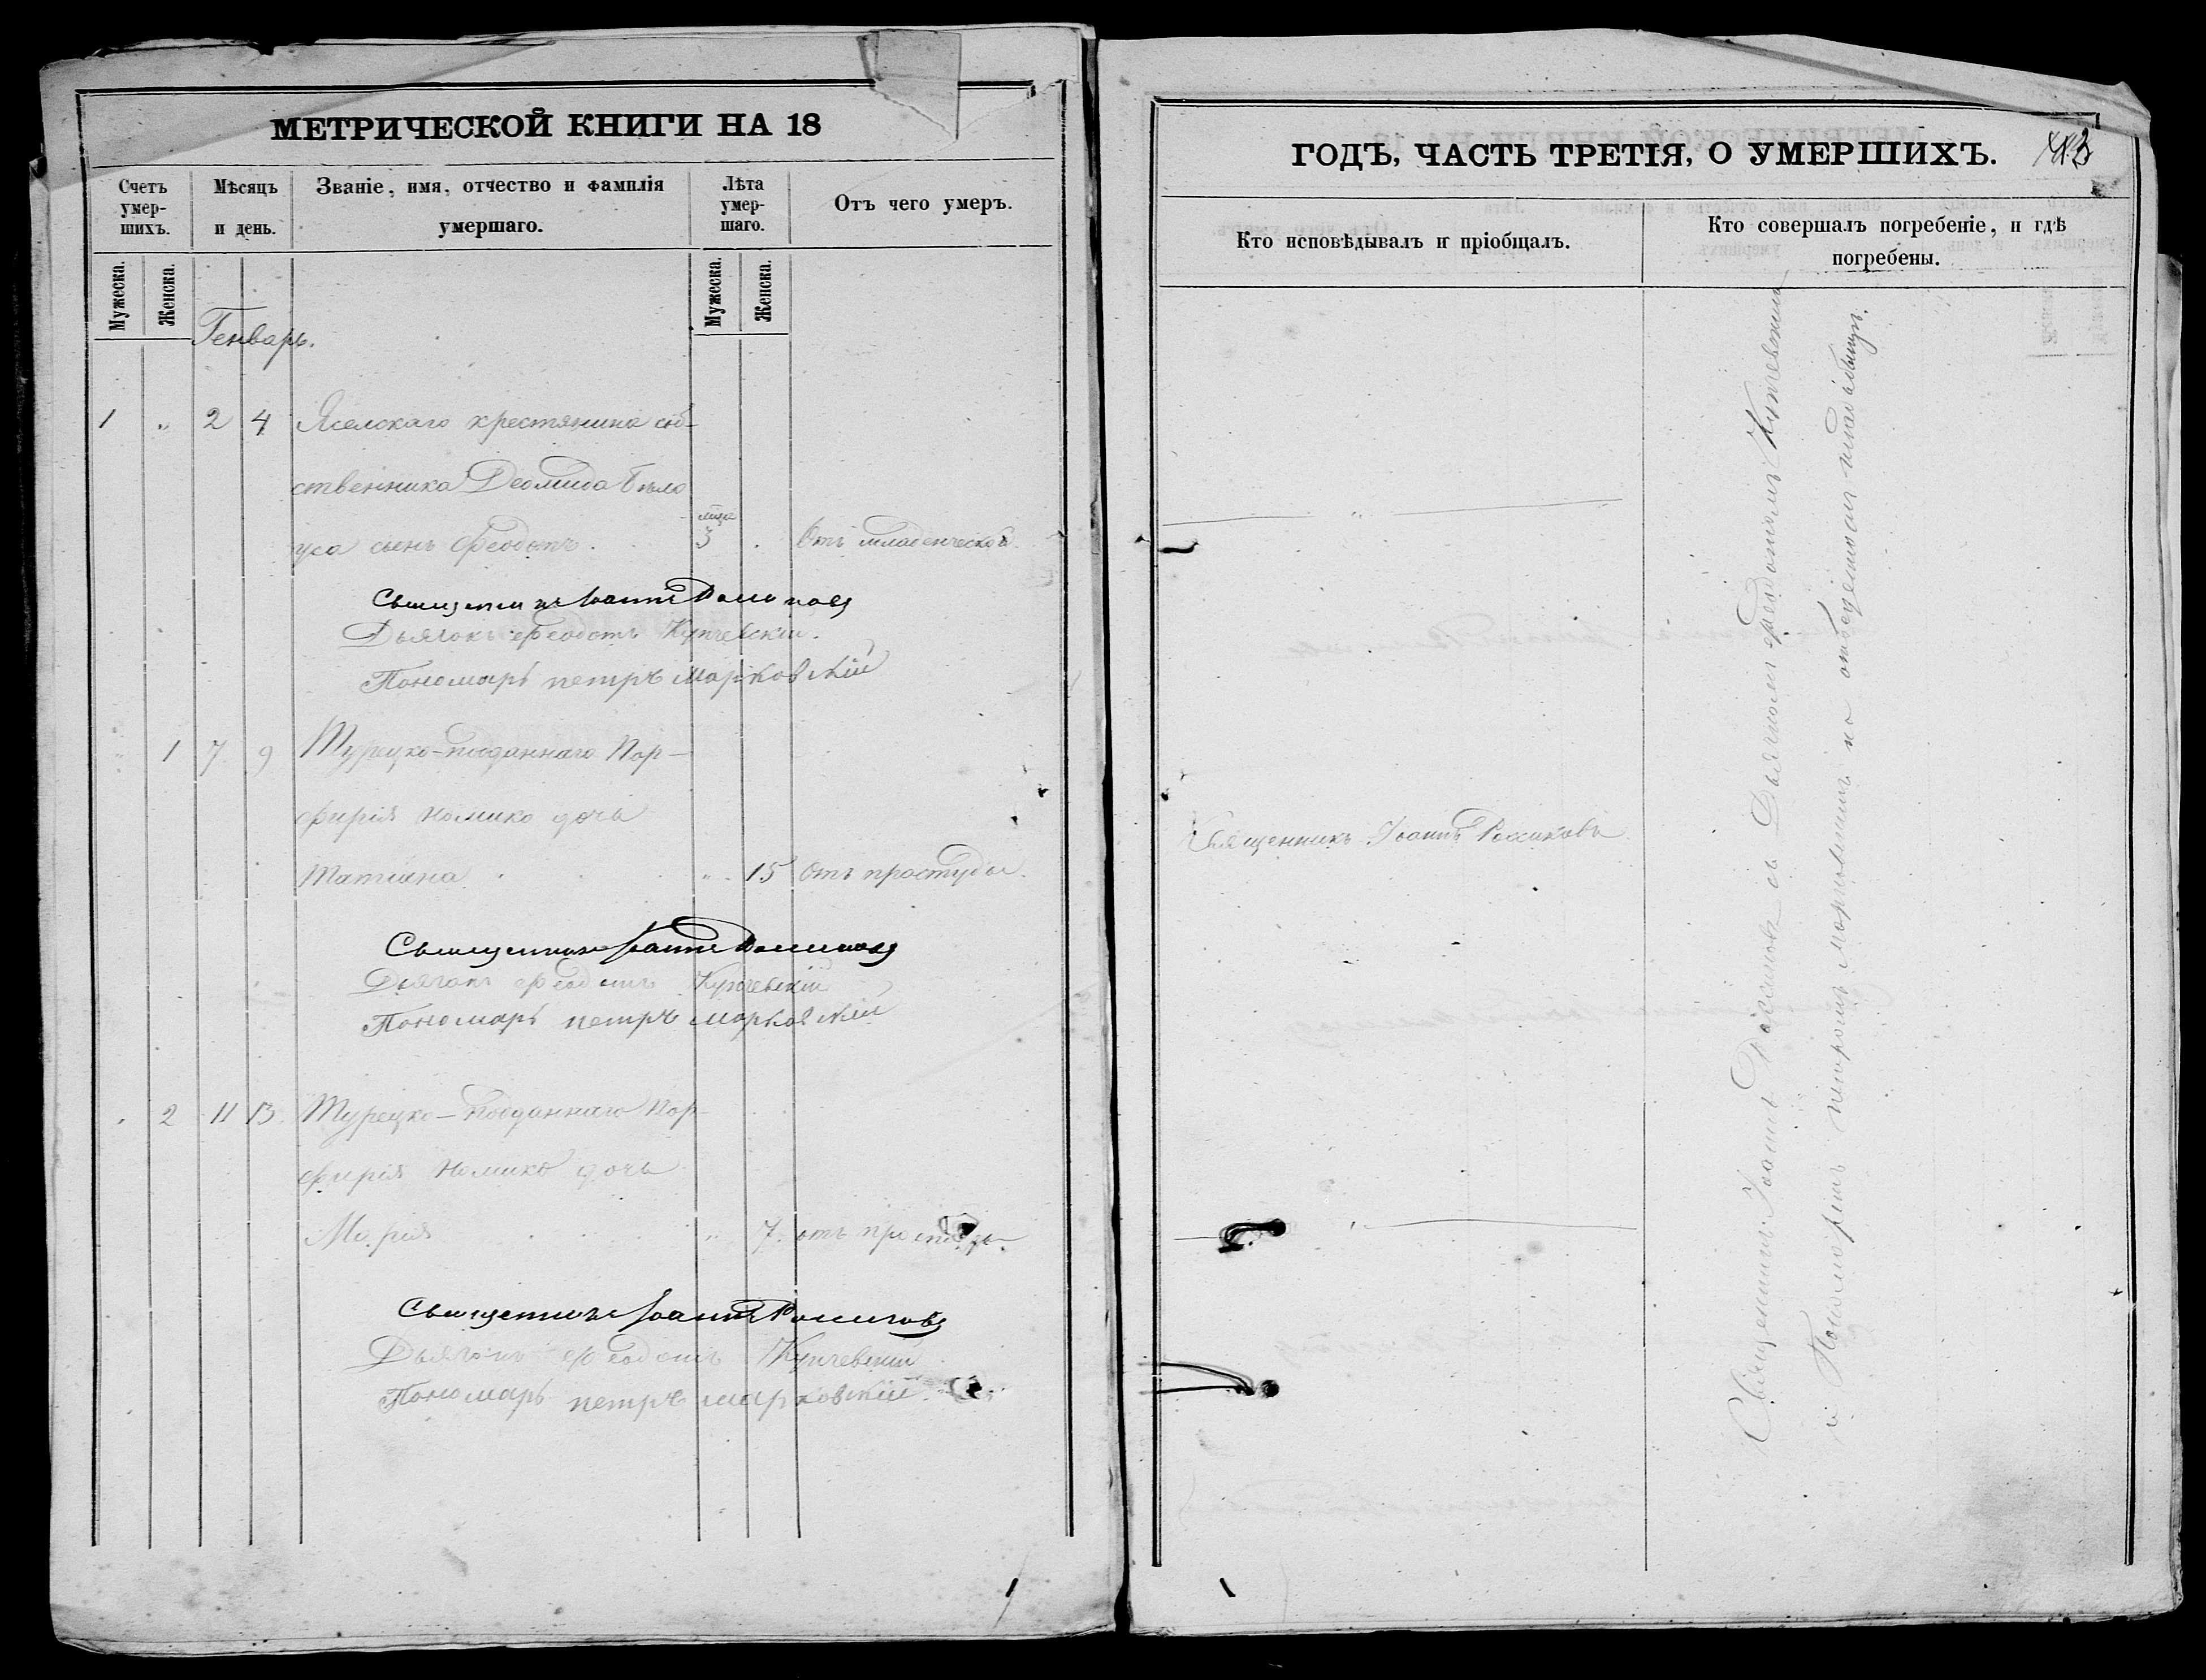 МЕТРИЧЕСКОЙ КНИГИ НА 18
Счетъ умер-шихъ.
Мѣсяцъ и день.
Званіе, имя, отчество и фамилія умершаго.
Лѣта умер-шаго.
Отъ чего умеръ.
Мужеска.
Женска.
Мужеска.
Женска.
Генварь.
1 " 2 4 крестянина соб-
ственника Деомида Бѣло
уса сынъ Феодотъ. мца 3 Отъ младенческой.
Священникъ Іоаннъ Россиковъ
Дьячокъ Феодотъ Купчевскій.
Пономарь петръ Марковскій
1 7 9 Турецко-подданнаго Пор-
фирія Номико дочь
Татіана " 15 Отъ простуды.
Священникъ Іоаннъ Россиковъ
Дьячокъ Феодотъ Купчевскій
Пономарь петръ Марковскій
2 11 13 Турецко-подданнаго Пор-
фирія Номико дочь
Марія " 7. отъ простуды.
Священникъ Іоаннъ Россиковъ
Дьячокъ Феодотъ Купчевскій
Пономарь петръ марковскій.
ГОДЪ, ЧАСТЬ ТРЕТІЯ, О УМЕРШИХЪ.
Кто исповѣдывалъ и пріобщалъ.
Кто совершалъ погребеніе, и гдѣ погребены.
Священникъ Іоаннъ Россиковъ
Священникъ Іоаннъ Россиковъ съ Дьячкомъ Феодотомъ Купчевскимъ
и Пономаремъ петромъ Марковскимъ на общественномъ кладбищѣ.